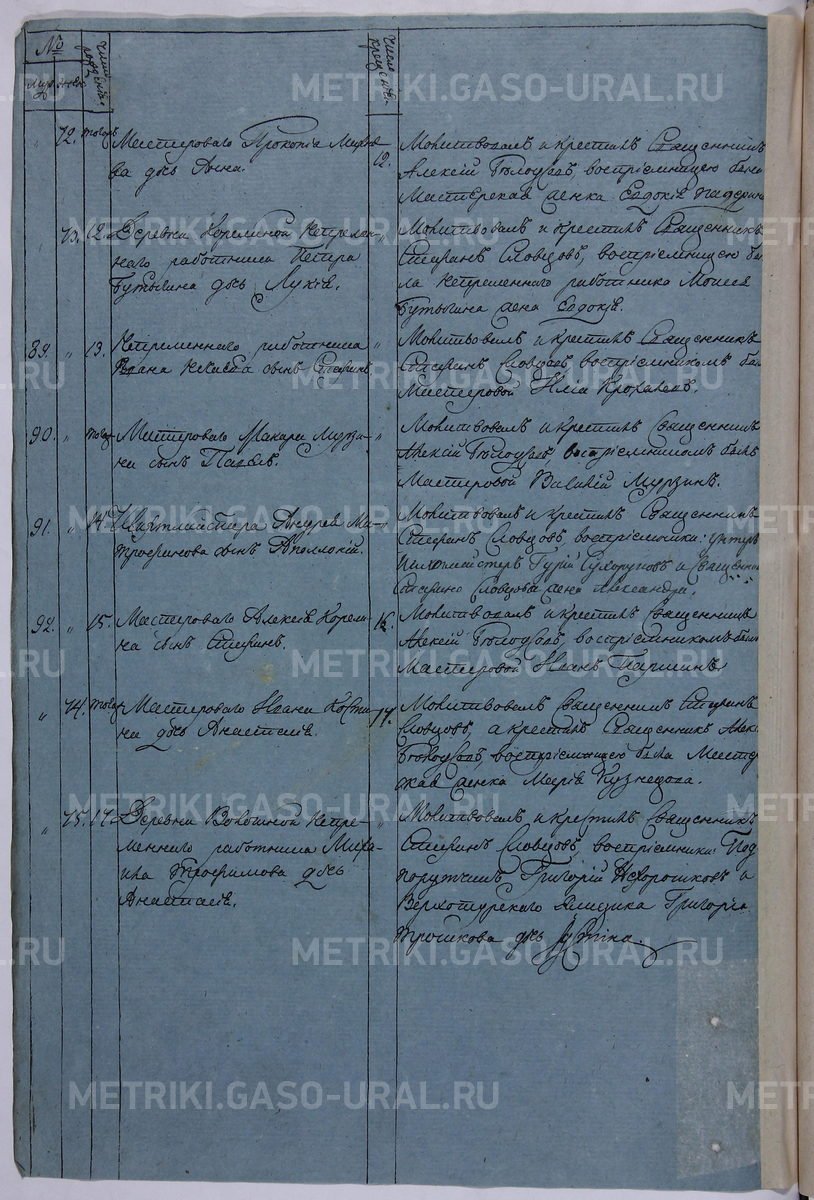 №
муж. жен.
число рожденія.
число крещенія.
" 72. тогож Мастероваго Прокопія
ва дчь Анна.
12. Молитвовалъ и крестилъ Священникъ
Алексій Бѣлоусовъ, воспріемницею была
Мастерская женка Евдокія
" 73. 12. Деревни Корелиной Непремен-
наго работника Петра
Бутыгина дчь Лукія.
" Молитвовалъ и крестилъ Священникъ
Стефанъ Словцовъ, воспріемницею бы-
ла непременнаго работника Моисея
Бутыгина жена Евдокія.
89. " 13. Непременнаго работника
Ивана сынъ Стефанъ.
" Молитвовалъ и крестилъ Священникъ
Стефанъ Словцовъ, воспріемникомъ былъ
Мастеровой Илья
90. " тогож Мастероваго Макара Мурзи-
на сынъ Павелъ.
" Молитвовалъ и крестилъ Священникъ
Алексій Бѣлоусовъ воспріемникомъ былъ
Мастеровой Василій Мурзинъ.
91. " 14. Шихтмейстера Андрея Ми-
трофанова сынъ Аполлоній.
" Молитвовалъ и крестилъ Священникъ
Стефанъ Словцовъ воспріемники: унтеръ
Гурій Сухоруковъ и Священника
Стефана Словцова жена Александра.
92. " 15. Мастероваго Алексея Корели-
на сынъ Стефанъ.
16. Молитвовалъ и крестилъ Священникъ
Алексій Бѣлоусовъ, воспріемникомъ былъ
Мастеровой Иванъ Паршинъ.
" 74. тогож Мастероваго Ивана Кости-
на дчь Анастасія.
17. Молитвовалъ Священникъ Стефанъ
Словцовъ, а крестилъ Священникъ Алекс.
Бѣлоусовъ, воспріемницею была Мастер-
ская женка Марія Кузнецова.
" 75. 17. Деревни Волегиной Непре-
меннаго работника Миха-
ила Трофимова дчь
Анастасія.
" Молитвовалъ и крестилъ Священникъ
Стефанъ Словцовъ, воспріемники: Под-
порутчикъ Григорій Нехорошковъ и
Верхотурскаго Ямщика Григорія
Трошкова дчь Іустина.
METRIKI.GASO-URAL.RU